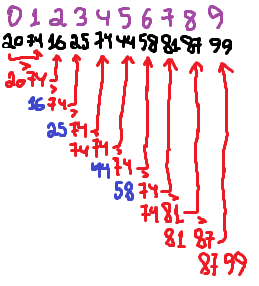 0 1 2 3 4 5 6 7 8 9
20 74 16 25 74 44 58 81 87 99
20 74
16 74
25 74
74 74
44 74
58 74
74 81
81 87
87 99